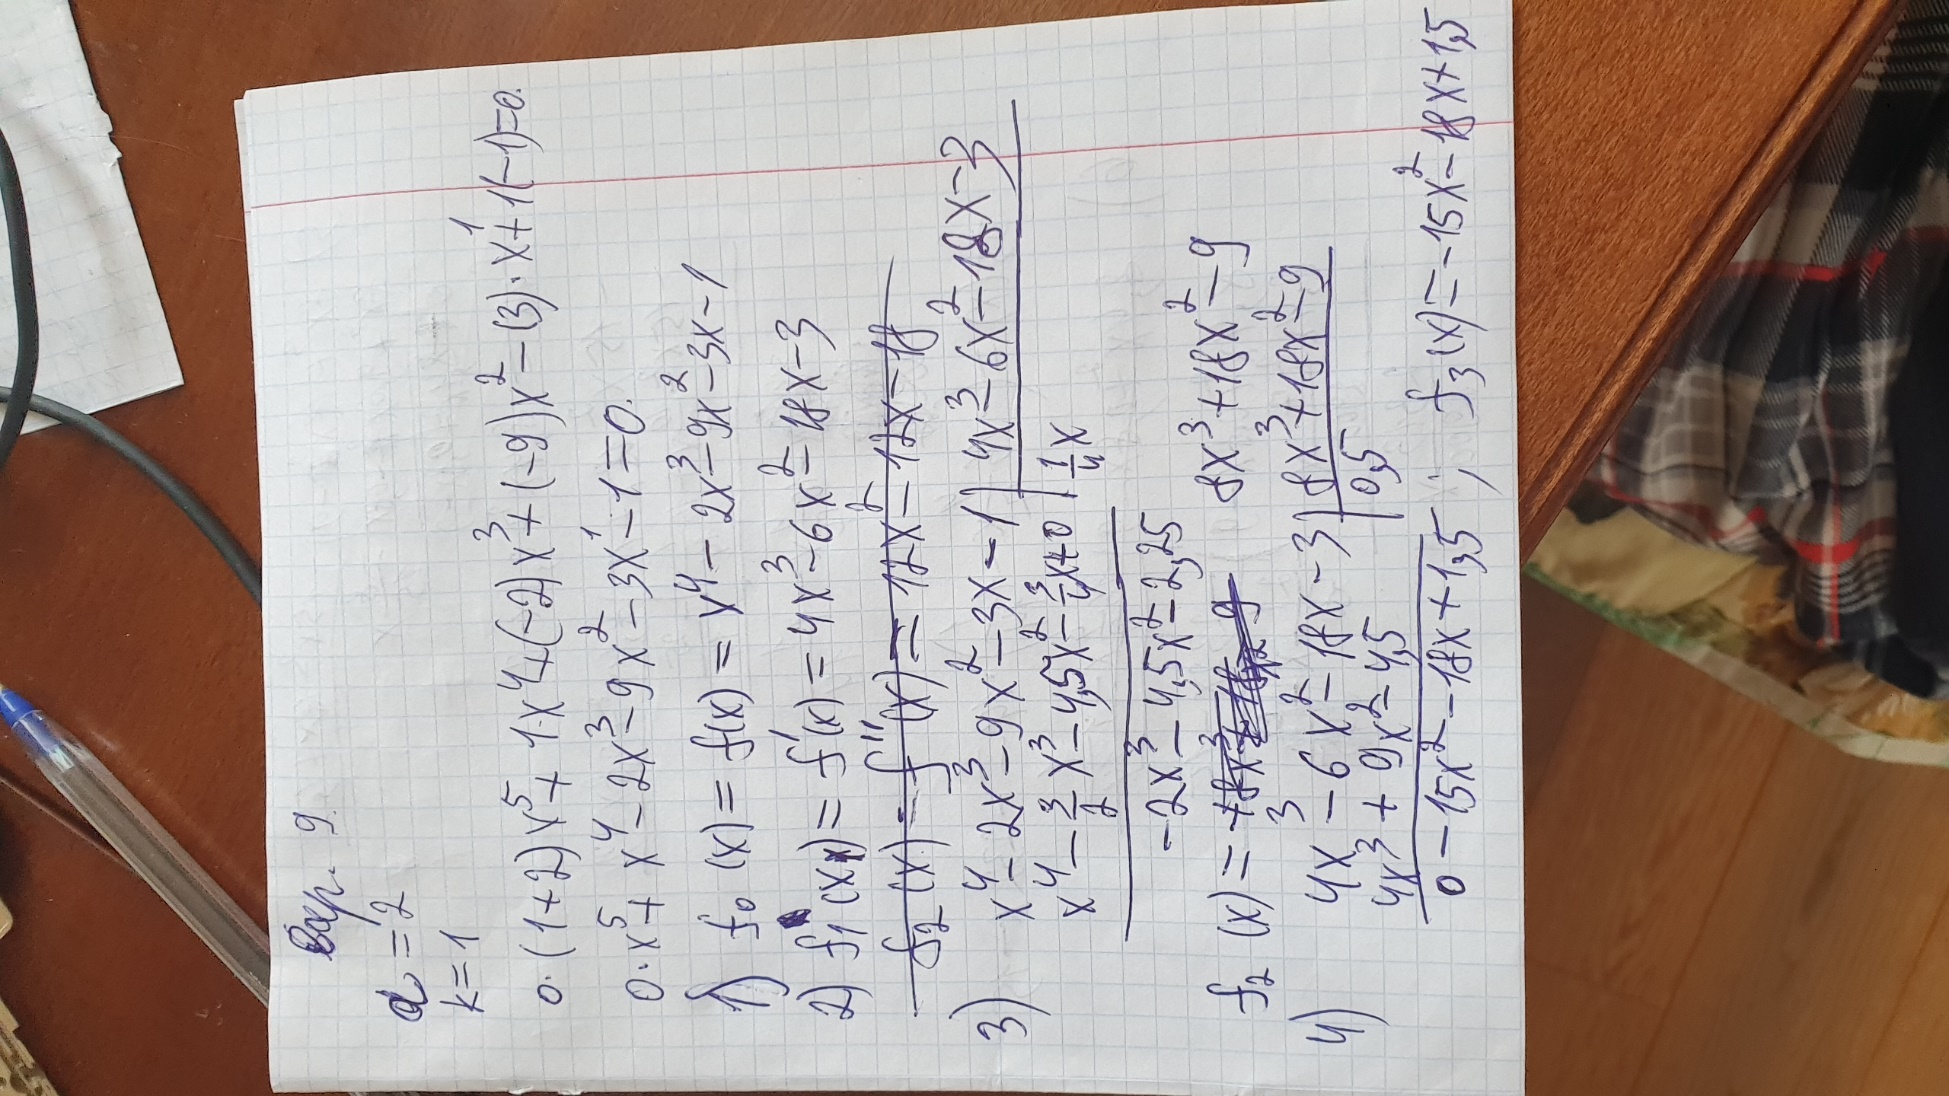 Вар. 9.
a=2
k=1
0·(1+2)x⁵+1·x⁴+(-2)x³+(-9)x²-(3)·x¹+1(-1)=0.
0·x⁵+x⁴-2x³-9x²-3x¹-1=0.
1) f₀(x)=f(x)=x⁴-2x³-9x²-3x-1
2) f₁(x)=f'(x)=4x³-6x²-18x-3
f₂(x)=f''(x)=12x²-12x-18
3) x⁴-2x³-9x²-3x-1 | 4x³-6x²-18x-3
x⁴-3/2x³-4,5x²-3/4x+0 | 1/4x
-2x³-4,5x²-2,25
f₂(x)= 8x³+18x²-9
4) 4x³-6x²-18x-3 | 8x³+18x²-9
4x³+9x²-4,5 | 0,5
0-15x²-18x+1,5 ; f₃(x)=-15x²-18x+1,5